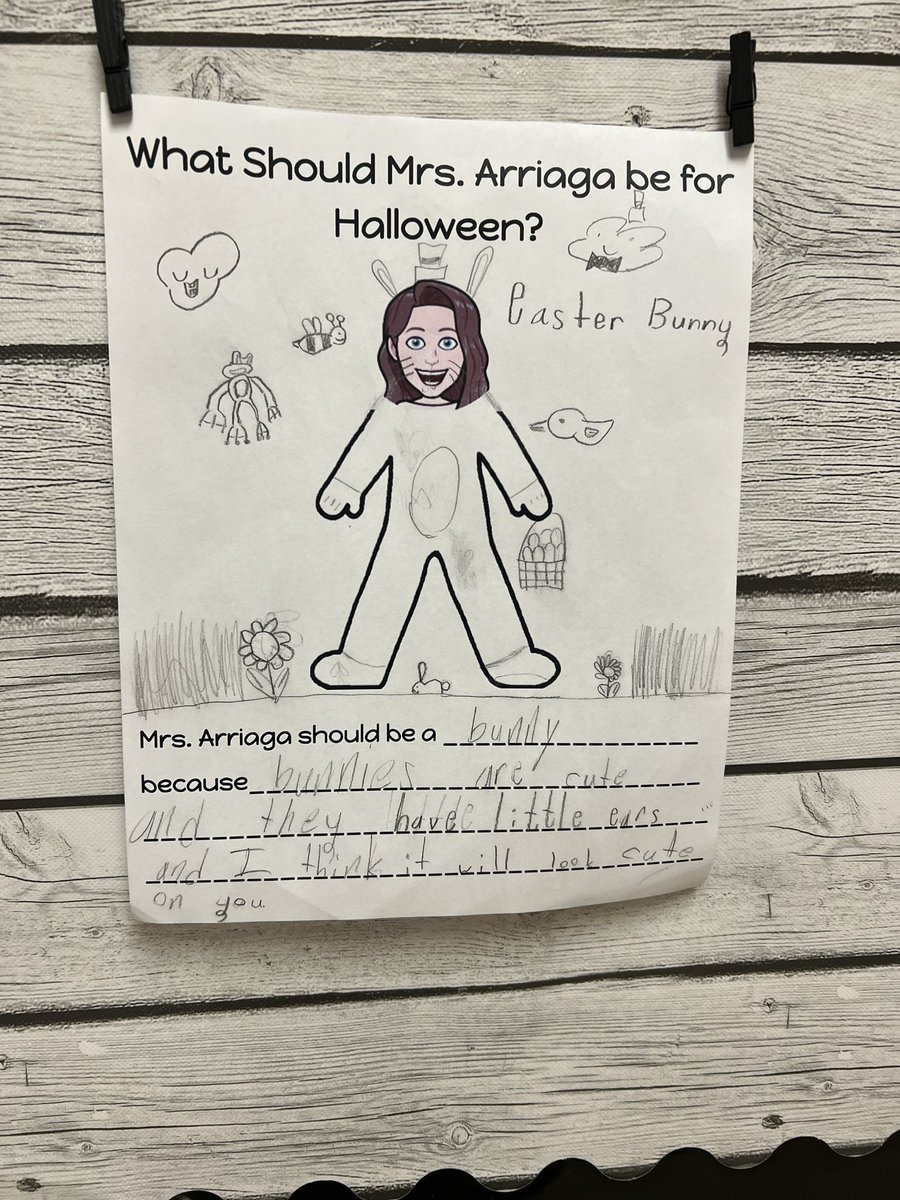 What Should Mrs. Arriaga be for
Halloween?
Easter Bunny
Mrs. Arriaga should be a bunny
because bunnies are cute
and they have little ears
and I think it will look cute
on you